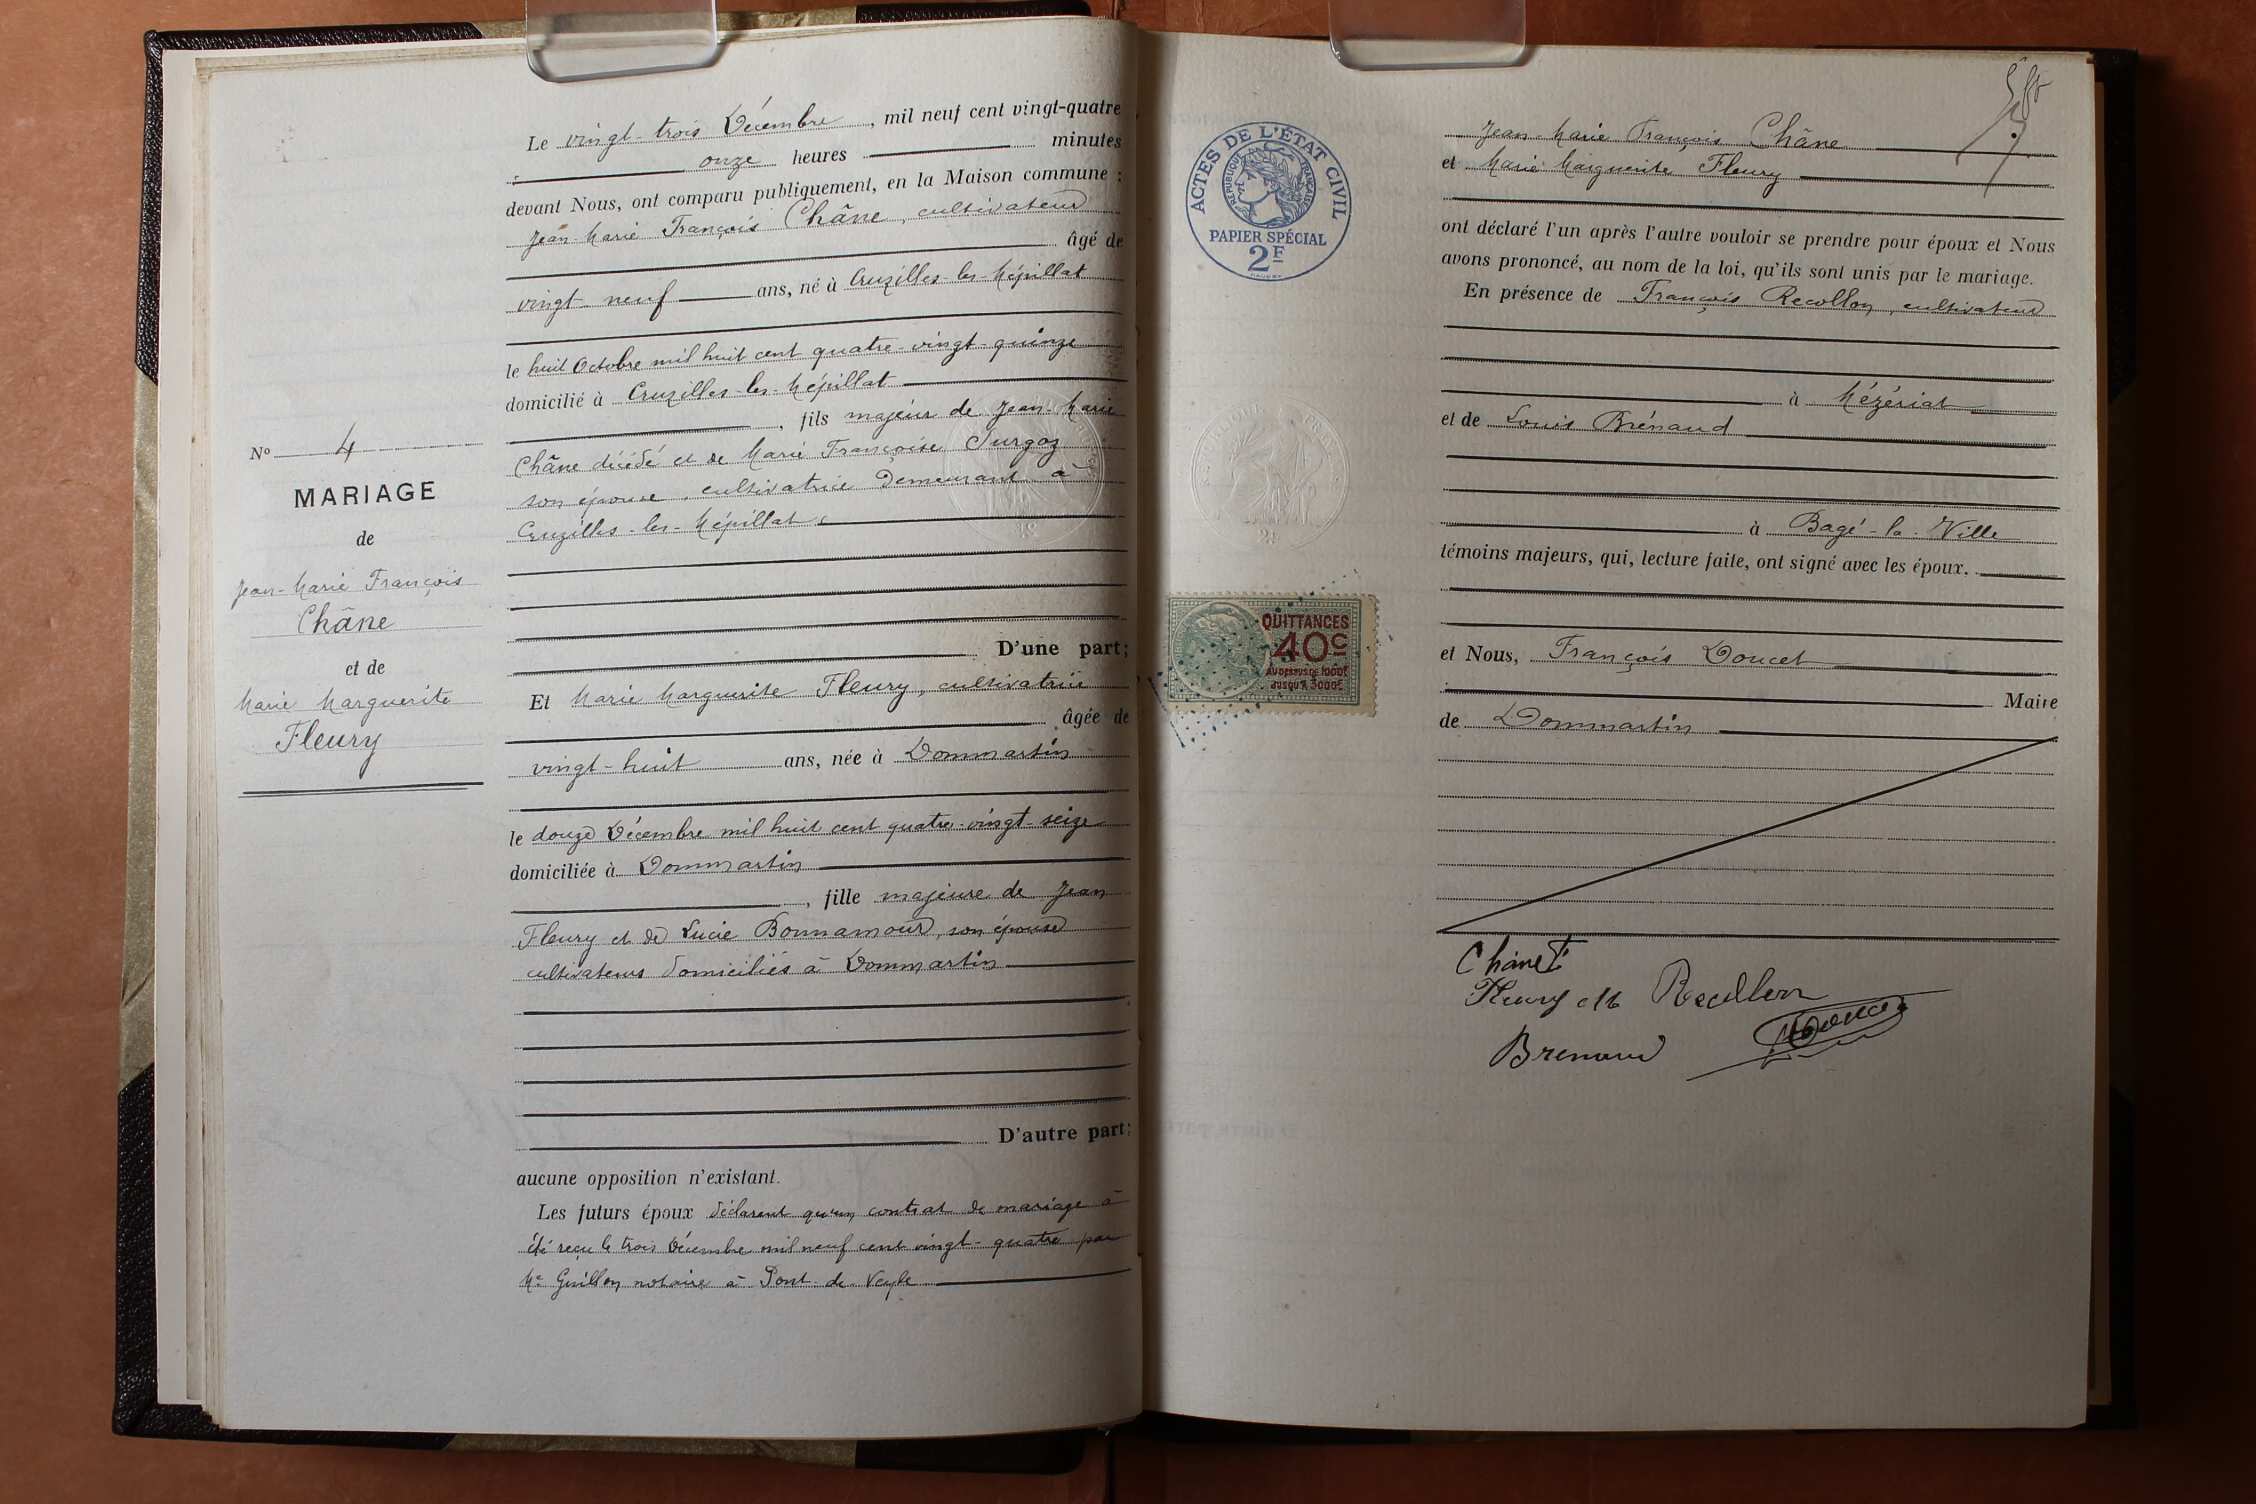 Le vingt-trois Décembre, mil neuf cent vingt-quatre
onze heures minutes
devant Nous, ont comparu publiquement, en la Maison commune :
Jean-Marie François Châne, cultivateur
âgé de
vingt-neuf ans, né à Cruzilles-les-Mépillat
le huit Octobre mil huit cent quatre-vingt-quinze
domicilié à Cruzilles-les-Mépillat
, fils majeur de Jean-Marie
Châne décédé et de Marie Françoise Surgoz
son épouse, cultivatrice demeurant à
Cruzilles-les-Mépillat
D'une part;
Et Marie Marguerite Fleury, cultivatrice
âgée de
vingt-huit ans, née à Dommartin
le douze Décembre mil huit cent quatre-vingt-seize
domiciliée à Dommartin
, fille majeure de Jean
Fleury et de Lucie Bonnamour, son épouse
cultivateurs domiciliés à Dommartin
D'autre part;
aucune opposition n'existant.
Les futurs époux déclarent qu'un contrat de mariage a
été reçu le trois Décembre mil neuf cent vingt-quatre par
Me Guillon notaire à Pont-de-Veyle
No 4
MARIAGE
de
Jean-Marie François
Châne
et de
Marie Marguerite
Fleury
ACTES DE L'ÉTAT CIVIL
RÉPUBLIQUE FRANÇAISE
PAPIER SPÉCIAL
2F
QUITTANCES
40c
AU DESSUS DE 1000F
JUSQU'A 3000F
Jean-Marie François Châne
et Marie Marguerite Fleury
ont déclaré l'un après l'autre vouloir se prendre pour époux et Nous
avons prononcé, au nom de la loi, qu'ils sont unis par le mariage.
En présence de François Recollon, cultivateur
à Mézériat
et de Louis Brénaud
à Bagé-la-Ville
témoins majeurs, qui, lecture faite, ont signé avec les époux.
et Nous, François Doucet
Maire
de Dommartin
Châne
Fleury Recollon
Brenaud Doucet